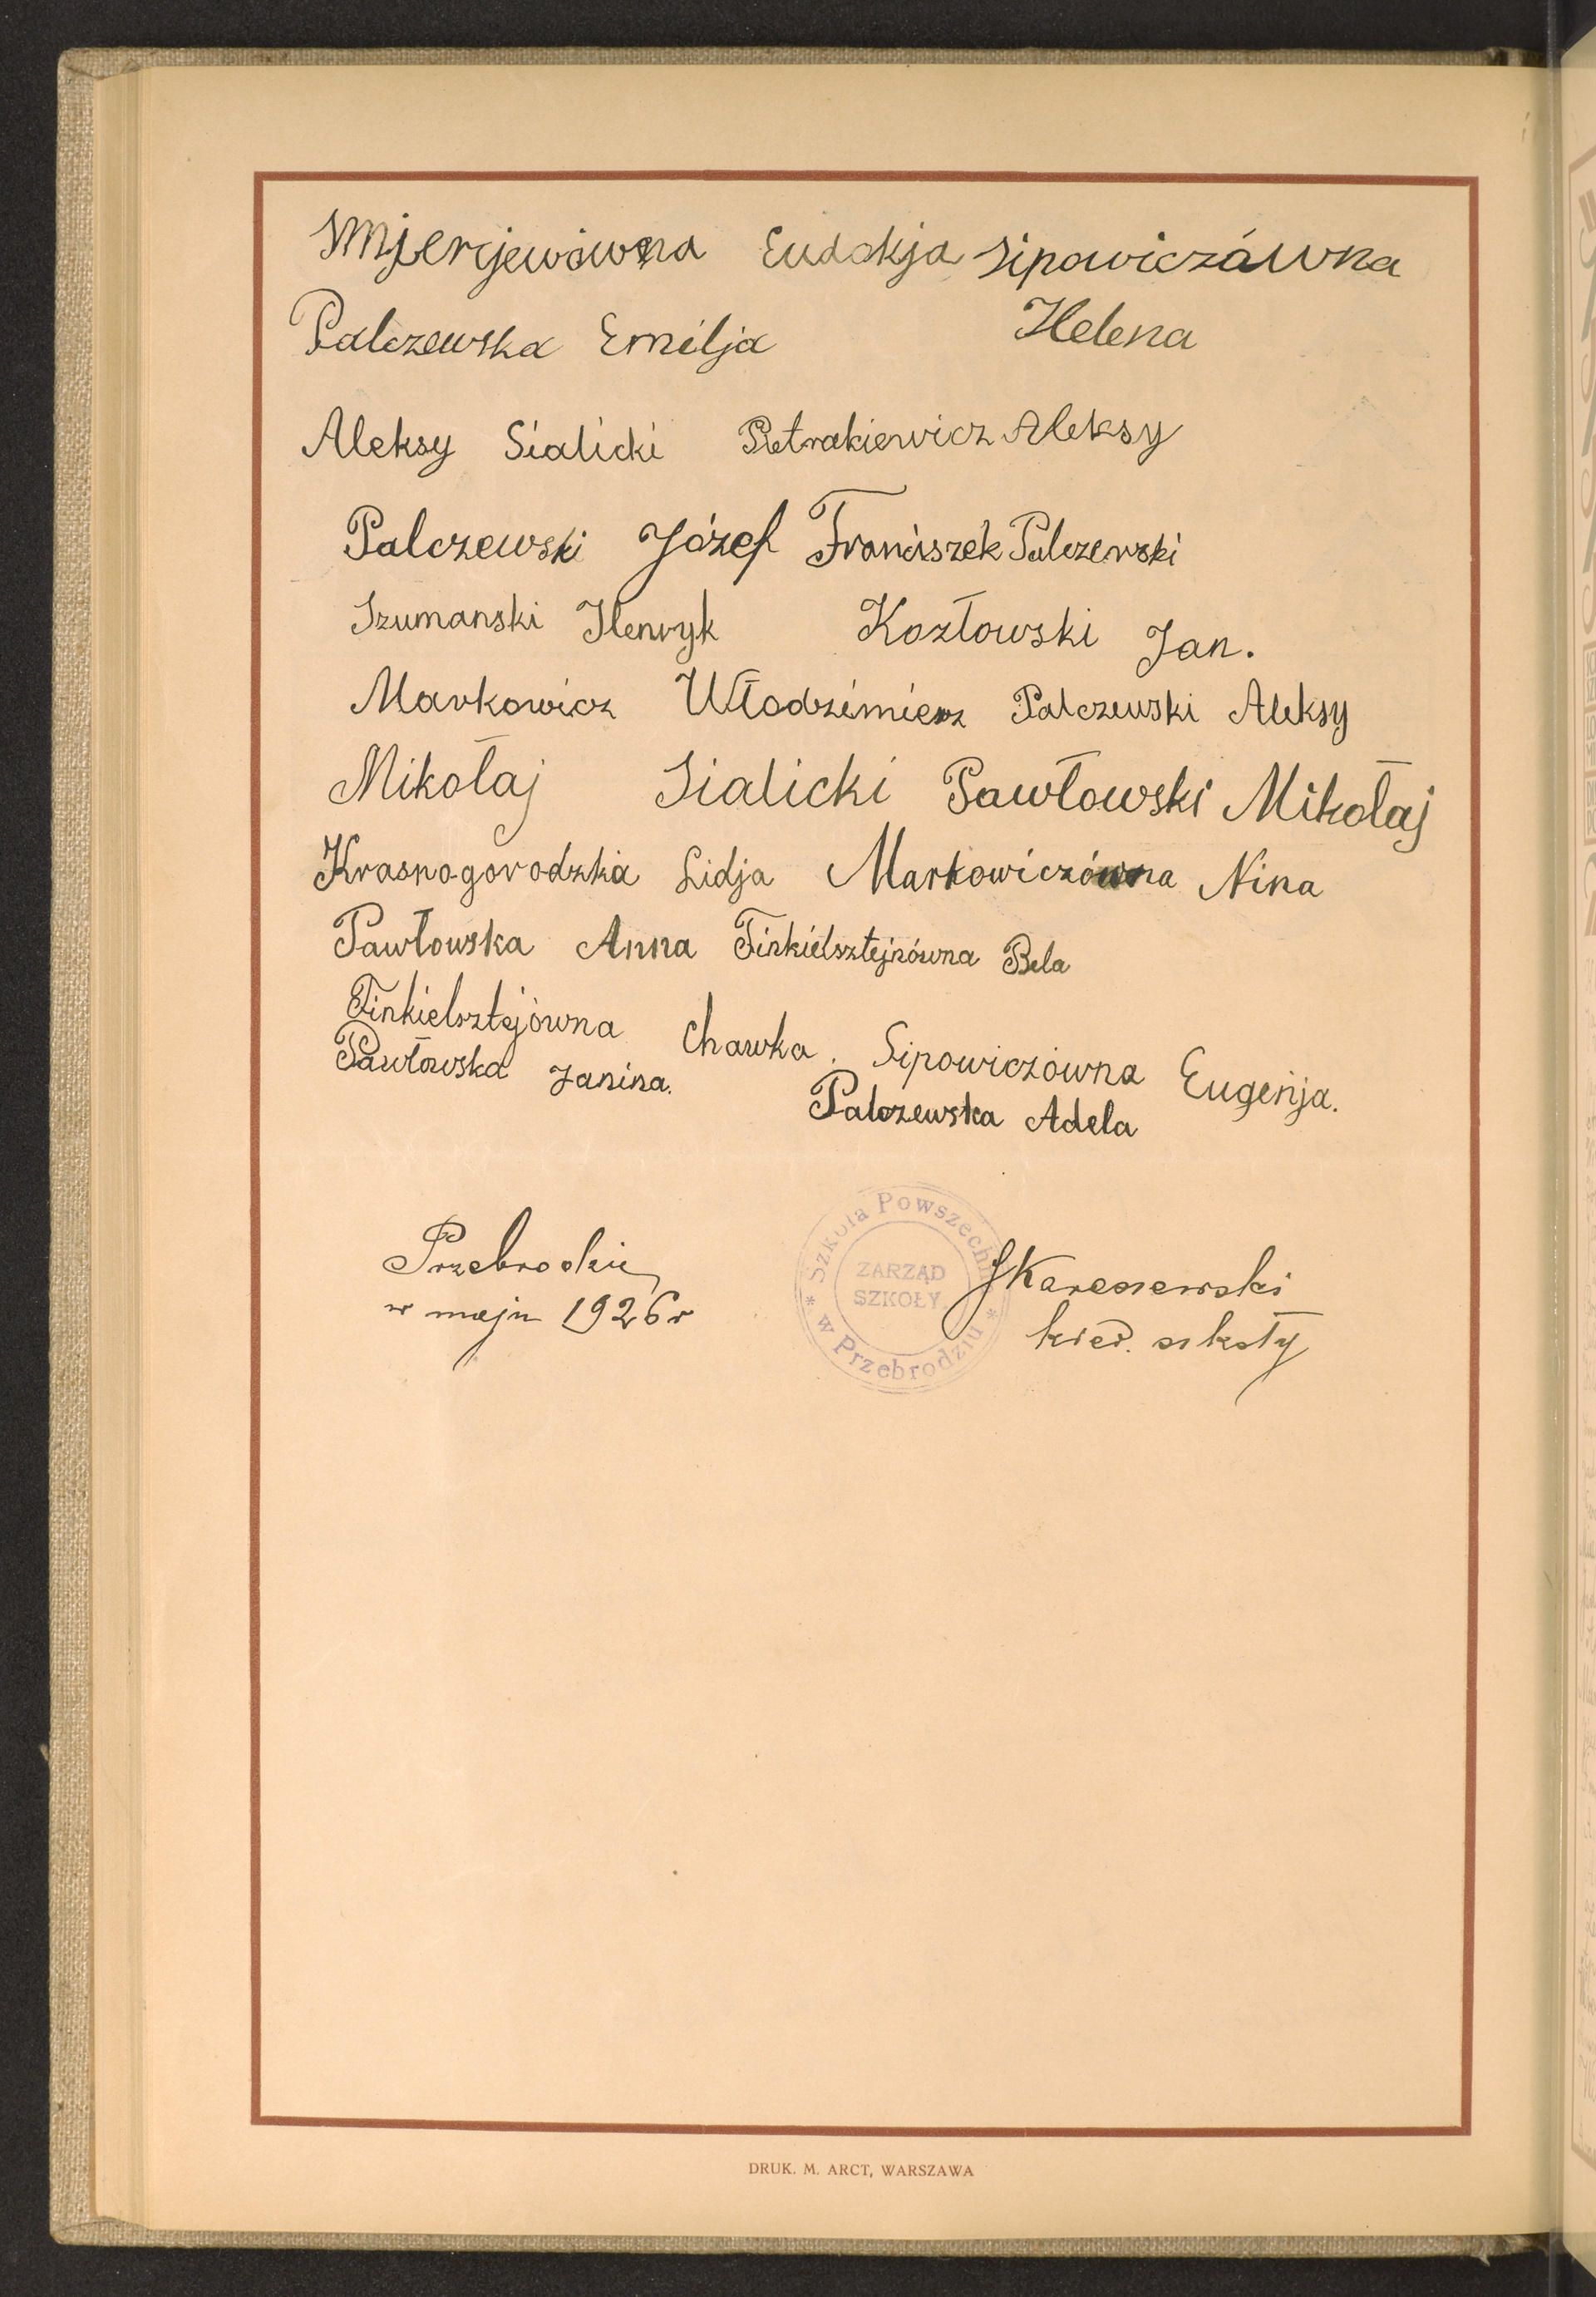 Smjercjewówna Eudokja Sipowiczówna
Palczewska Emilja Helena
Aleksy Sialicki Pietrakiewicz Aleksy
Palczewski Józef Franciszek Palczewski
Szumanski Henryk Kozłowski Jan.
Markowicz Włodzimierz Palczewski Aleksy
Mikołaj Sialicki Pawłowski Mikołaj
Krasnogorodzka Lidja Markowiczówna Nina
Pawłowska Anna Finkielsztejnówna Bela
Finkielsztejówna Chawka. Sipowiczówna Eugenja.
Pawłowska Janina.
Palczewska Adela
Przebrodzie
w maju 1926 r
Szkoła Powszechna
ZARZĄD
SZKOŁY
* w Przebrodziu *
kier. szkoły
DRUK. M. ARCT, WARSZAWA